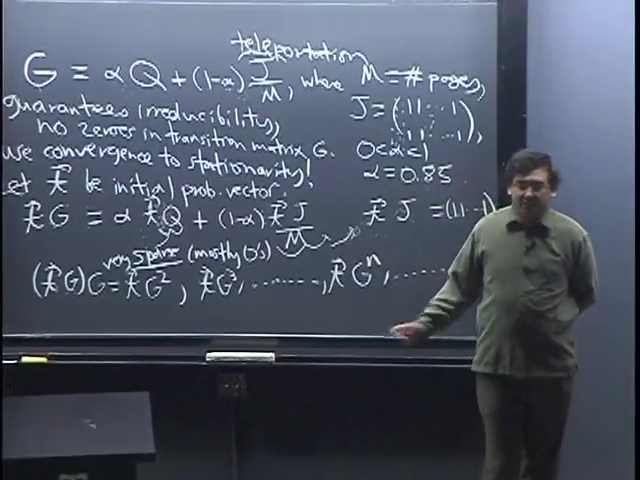 teleportation
G = αQ + (1-α) J/M, where M = # pages,
guarantees irreducibility, J = (11...1 11...1),
no zeroes in transition matrix G. 0<α<1
use convergence to stationarity! α = 0.85
Let t⃗ be initial prob. vector.
t⃗G = α t⃗Q + (1-α) t⃗J/M t⃗J = (11...1)
very sparse (mostly 0's)
(t⃗G)G = t⃗G², t⃗G³, ......., t⃗Gⁿ, ......